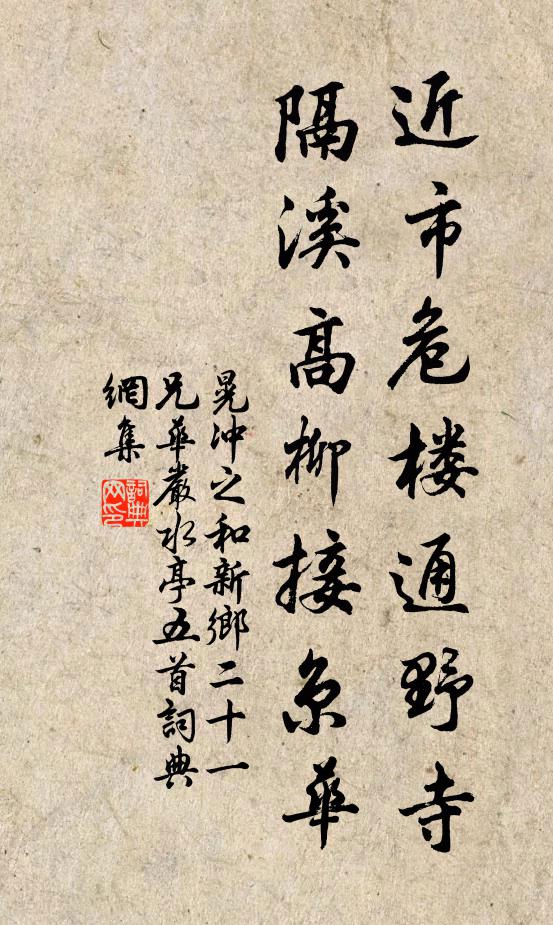 近市危楼通野寺
隔溪高柳接京華
晃沖之和新鄉二十一
兄華嚴水亭五首詞典
網集
詞典
网印